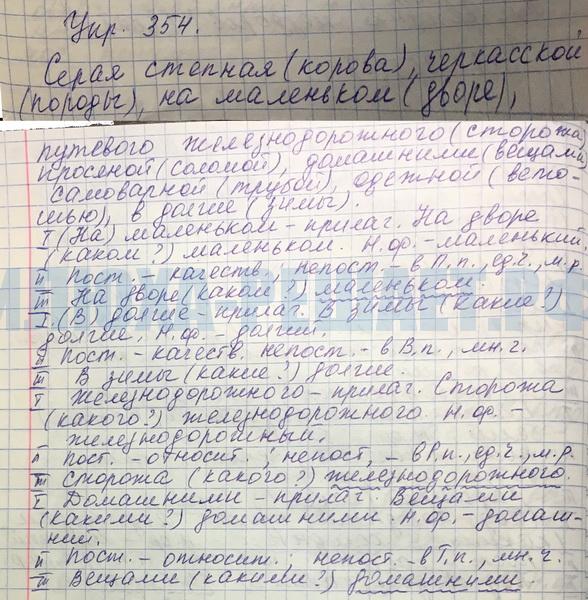 Упр. 354.
Серая степная (корова), черкасской
(породы), на маленьком (дворе),
путевого железнодорожного (сторожа),
просяной (соломой), домашними (вещами),
самоварной (трубой), одежной (вето-
шью), в долгие (зимы).
I (На) маленьком – прилаг. На дворе
(каком?) маленьком. Н.ф. – маленький
II Пост. – качеств.; непост. – в П.п., ед.ч., м.р.
III На дворе (каком?) маленьком.
I (В) долгие – прилаг. В зимы (какие?)
долгие, н.ф. – долгий.
II Пост. – качеств. непост. – в В.п., мн.ч.
III В зимы (какие?) долгие.
I Железнодорожного – прилаг. Сторожа
(какого?) железнодорожного. Н.ф. –
железнодорожный.
II Пост. – относит.; непост. – в Р.п., ед.ч., м.р.
III Сторожа (какого?) железнодорожного.
I Домашними – прилаг. Вещами
(какими?) домашними. Н.ф. – домаш-
ний.
II Пост. – относит.; непост. – в Т.п., мн.ч.
III Вещами (какими?) домашними.